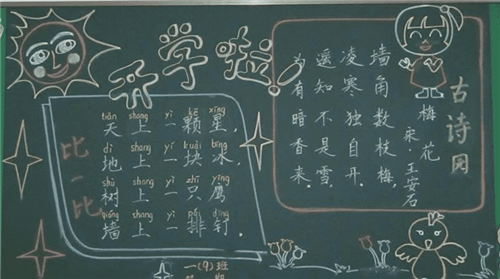 开学啦!
比一比
tiān shang yì kē xīng
天上一颗星,
dì shang yí kuài bīng
地上一块冰。
shù shang yì zhī yīng
树上一只鹰,
qiáng shang yì pái dīng
墙上一排钉。
一(9)班
古诗园
梅花
宋·王安石
墙角数枝梅,
凌寒独自开。
遥知不是雪,
为有暗香来。